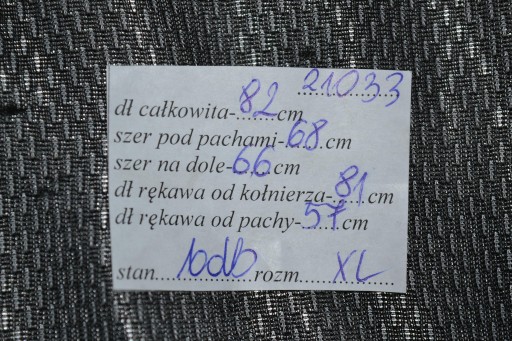 21033
dł całkowita-82cm
szer pod pachami-68cm
szer na dole-66cm
dł rękawa od kołnierza-81cm
dł rękawa od pachy-57cm
stan bdb rozm XL